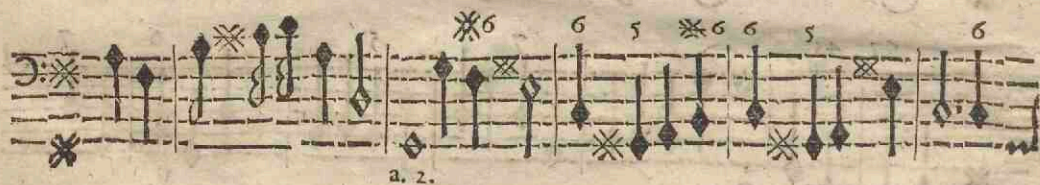 6 6 5 6 6 5 6
a. 2.